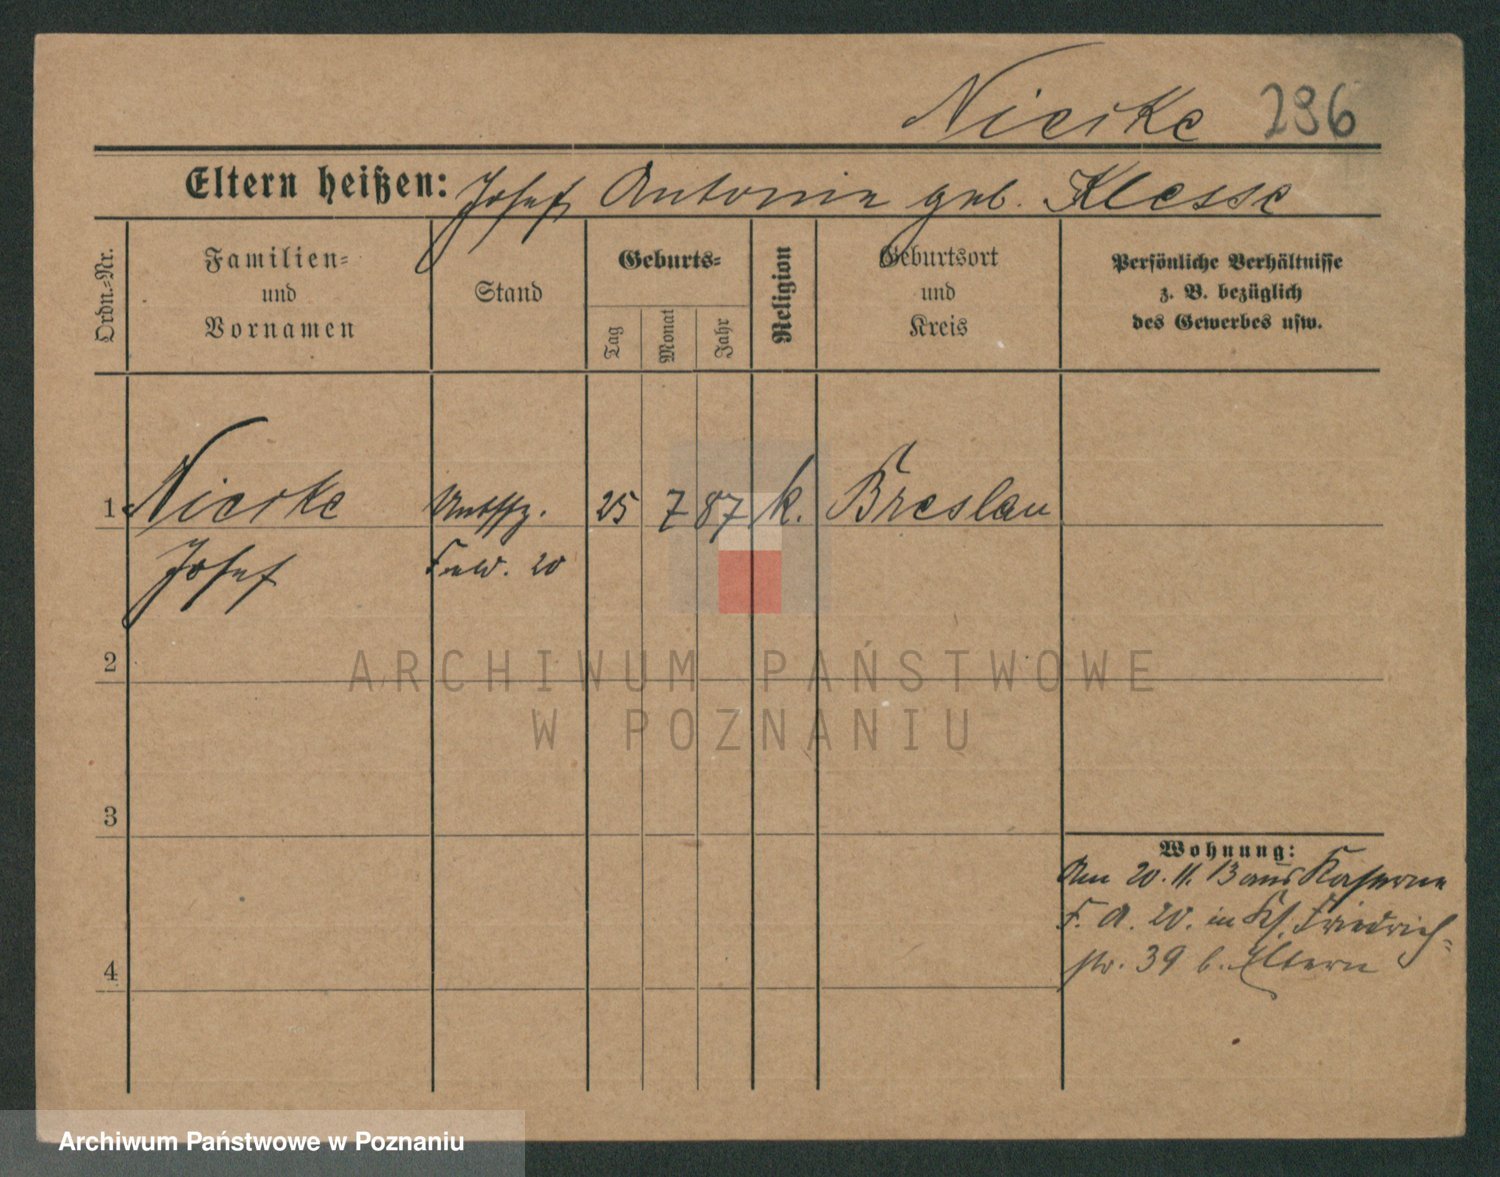 Nierke 296
Eltern heißen: Josef Antonie geb. Klesse
Ordn.-Nr.
Familien-
und
Vornamen
Stand
Geburts-
Tag
Monat
Jahr
Religion
Geburtsort
und
Kreis
Persönliche Verhältnisse
z. B. bezüglich
des Gewerbes usw.
1 Nierke 25 7 87 k. Breslau
Josef 20
2
3
4
Wohnung:
Am 20. 11. 13 aus Kaserne
F. A. 20. in Friedrich-
str. 39 b. Eltern
ARCHIWUM PAŃSTWOWE
W POZNANIU
Archiwum Państwowe w Poznaniu